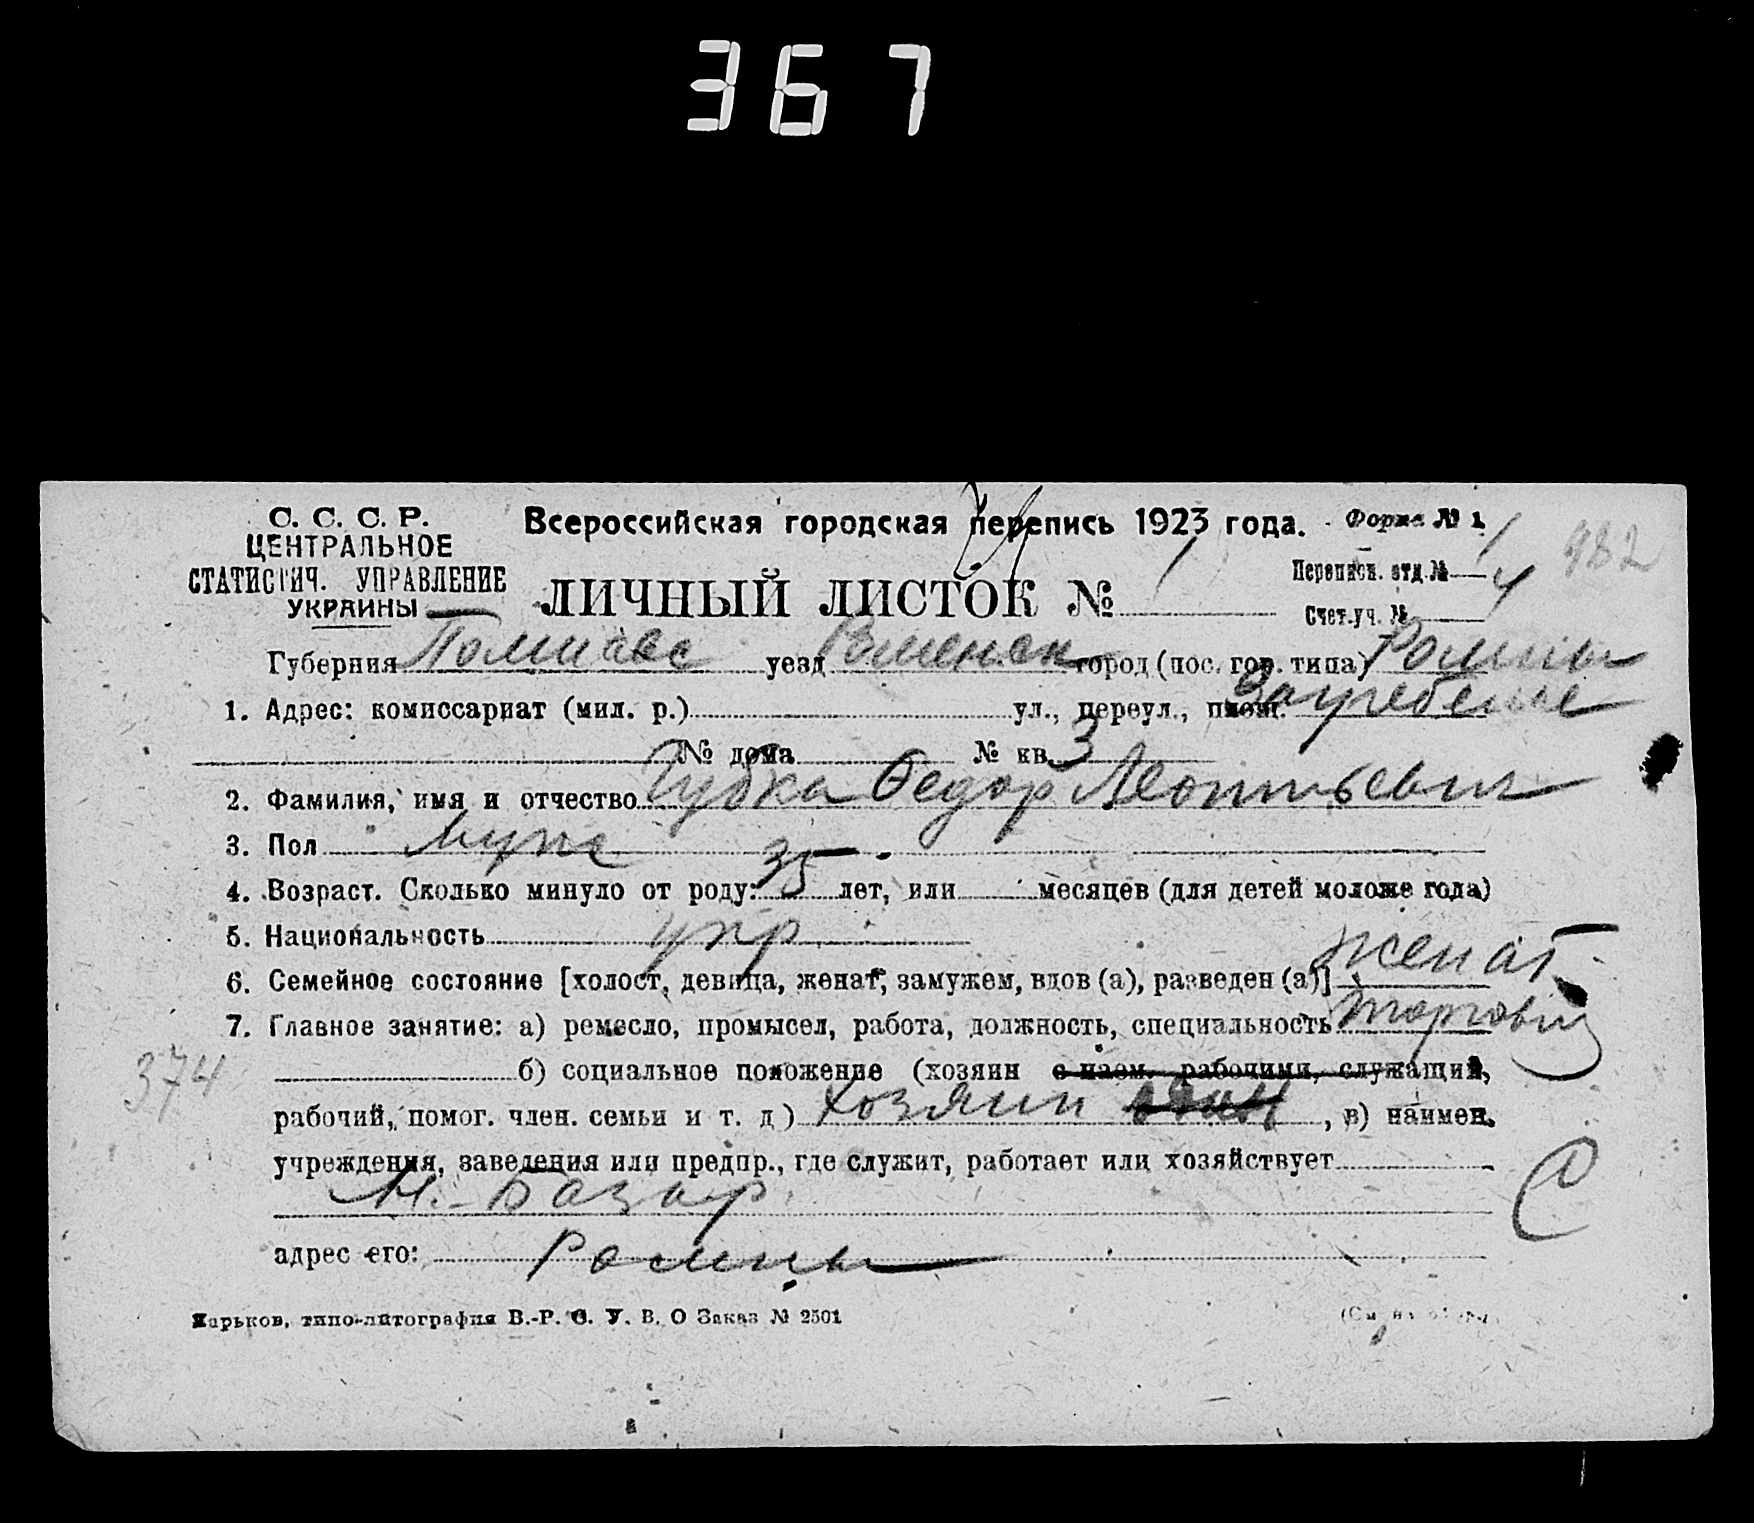 367
С. С. С. Р.
ЦЕНТРАЛЬНОЕ
СТАТИСТИЧ. УПРАВЛЕНИЕ
УКРАИНЫ
Всероссийская городская перепись 1923 года.
Форма № 1
982
ЛИЧНЫЙ ЛИСТОК № 1
Переписн. отд. № 1
Счет.уч. № 4
Губерния Полтавс уезд Роменск город (пос. гор. типа) Ромны
1. Адрес: комиссариат (мил. р.) ул., переул., площ. Загребелье
№ дома № кв. 3
2. Фамилия, имя и отчество Губка Федор Леонтьевич
3. Пол Мужс
4. Возраст. Сколько минуло от роду: 35 лет, или месяцев (для детей моложе года)
5. Национальность укр
6. Семейное состояние [холост, девица, женат, замужем, вдов (а), разведен (а)] женат
7. Главное занятие: а) ремесло, промысел, работа, должность, специальность торговец
374
б) социальное положение (хозяин с наем. рабочими, служащий,
рабочий, помог. член. семьи и т. д) хозяин , в) наимен.
учреждения, заведения или предпр., где служит, работает или хозяйствует
М. Базар
адрес его: Ромны
Харьков, типо-литография В.-Р. С. У. В. О Заказ № 2501